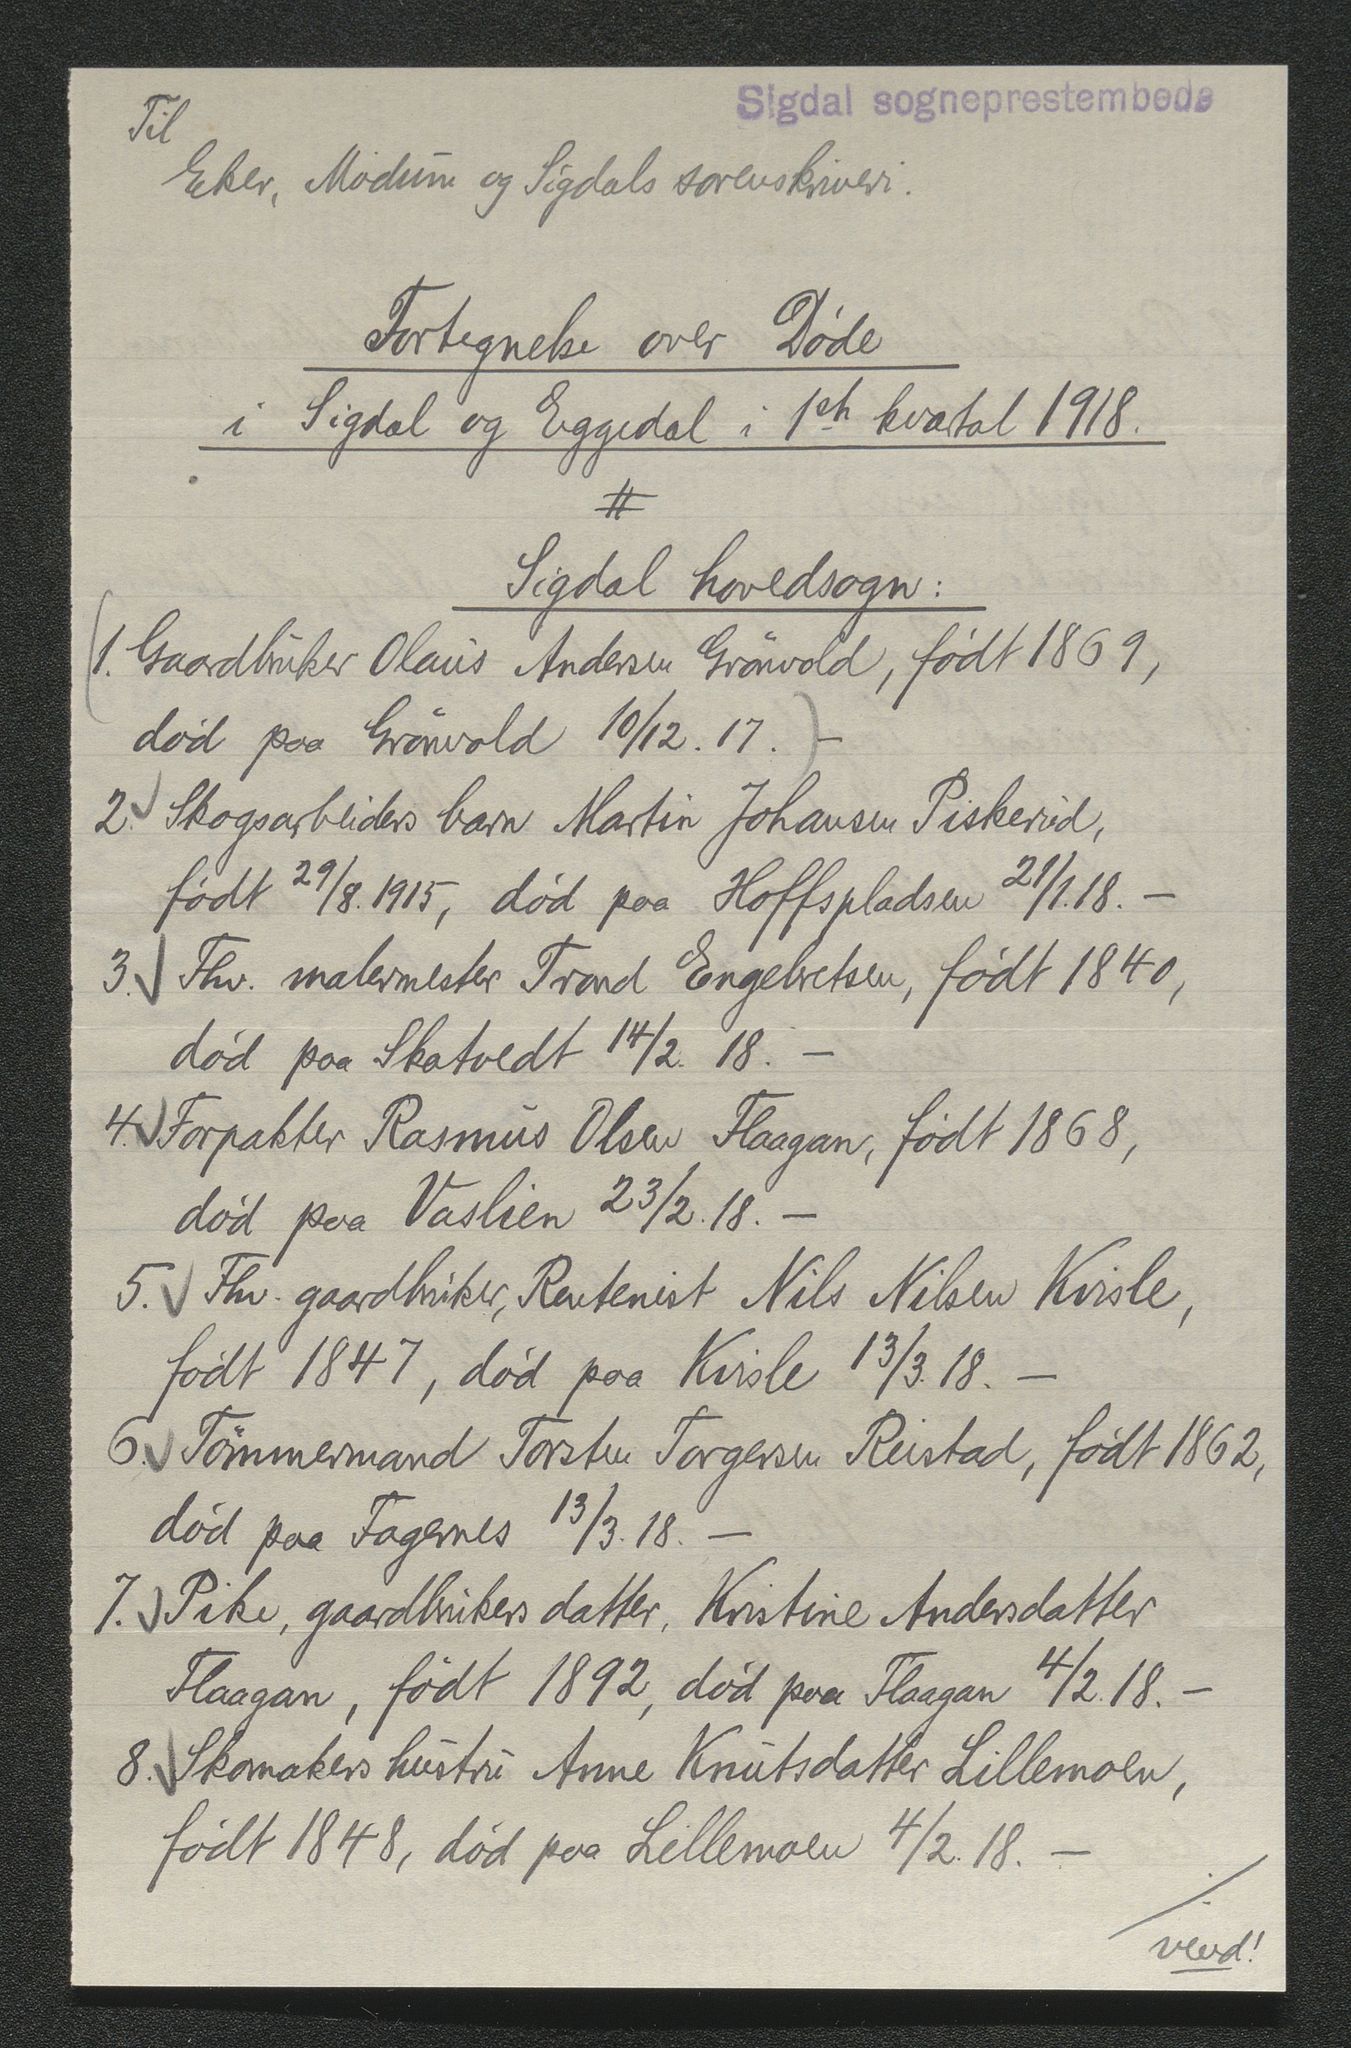 Sigdal sogneprestembede
Til
Eker, Modum og Sigdals sorenskriveri.
Fortegnelse over Døde
i Sigdal og Eggedal i 1st kvartal 1918.
#
Sigdal hovedsogn:
(1. Gaardbruker Olaus Andersen Grönvold, født 1869,
død paa Grönvold 10/12. 17. ) –
2. Skogsarbeiders barn Martin Johansen Piskerud,
født 29/8. 1915, død paa Hoffspladsen 21/1. 18. –
3. Fhv. malermester Trond Engebretsen, født 1840,
død paa Skatvedt 14/2. 18. –
4. Forpakter Rasmus Olsen Flaagan, født 1868,
død paa Vaslien 23/2. 18. –
5. Fhv. gaardbruker, Rentenist Nils Nilsen Kvisle,
født 1847, død paa Kvisle 13/3. 18. –
6. Tömmermand Torsten Torgersen Reistad, født 1862,
død paa Fagernes 13/3. 18. –
7. Pike, gaardbrukers datter, Kristine Andersdatter
Flaagan, født 1892, død paa Flaagan 4/2. 18. –
8. Skomakers hustru Anne Knutsdatter Lillemoen,
født 1848, død paa Lillemoen 4/2. 18. –
vend!